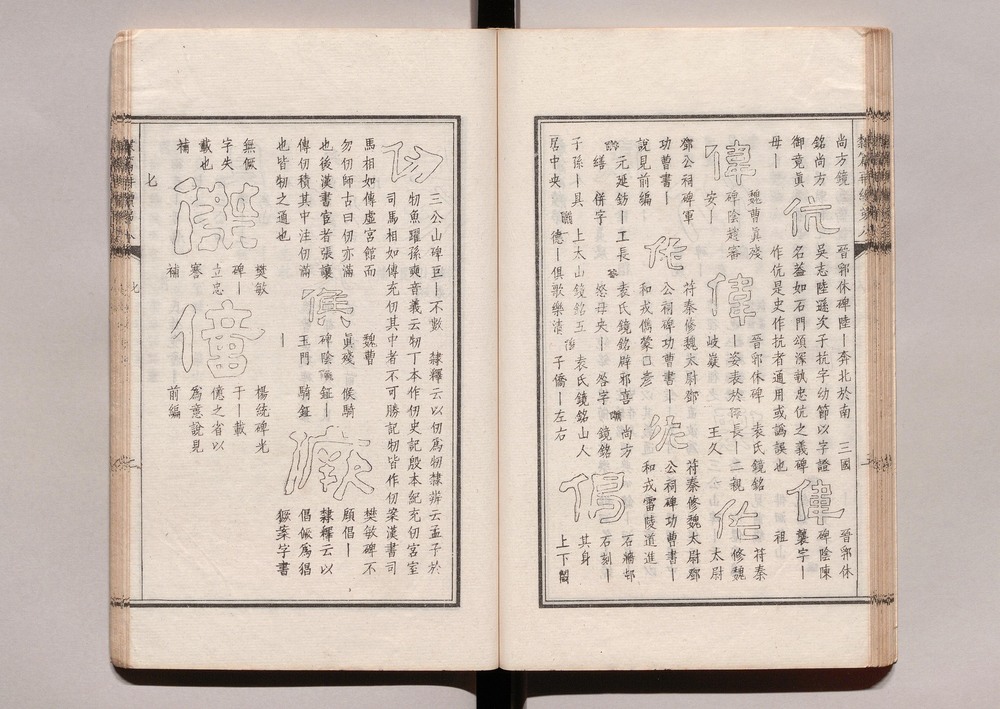 尚方鏡
銘尚方
御竟真
母｜
伉
晉郭休碑陸｜奔北於南 三國
吳志陸遜次子抗字幼節以字證
名蓋如石門頌深執忠伉之義碑
作伉是史作抗者通用或譌誤也
偉
晉郭休
碑陰陳
襲字｜
祖
偉
魏曹真殘
碑陰趙審
安｜
偉
晉郭休碑
｜姿表於
岐嶷
袁氏鏡銘
孫長｜二親
王久
佐
苻秦
修魏
太尉
鄧公祠碑軍
功曹書｜
說見前編
佐
苻秦修魏太尉鄧
公祠碑功曹書｜
和戎儁蒙囗彥
佐
苻秦修魏太尉鄧
公祠碑功曹書｜
和戎雷陵道進
元延鈁｜工長
繕 併字
袁氏鏡銘辟邪喜
怒母央｜ 咎字
尚方
鏡銘
子孫｜具
居中央
上太山鏡銘五
德｜俱歌樂濤
袁氏鏡銘山人
子僑｜左右
石牆邨
石刻｜
其身
上下闕
仞
三公山碑巨｜不數 隸釋云以仞為牣隸辨云孟子於
牣魚躍孫奭音義云牣丁本作仞史記殷本紀充仞宮室
司馬相如傳充仞其中者不可勝記牣皆作仞案漢書司
馬相如傳虛宮館而
勿仞師古曰仞亦滿
也後漢書宦者張讓
傳仞積其中注仞滿
也皆牣之通也
候
魏曹
真殘
碑陰
玉門
｜
候騎
鉦｜
騎鉦
㒧
樊敏碑不
顧倡｜
隸釋云以
倡㒧為猖
獗案字書
無㒧
字失
載也
補
傑
樊敏
碑｜
立忠
謇
補
億
楊統碑光
于｜載
億之省以
為意說見
前編
七